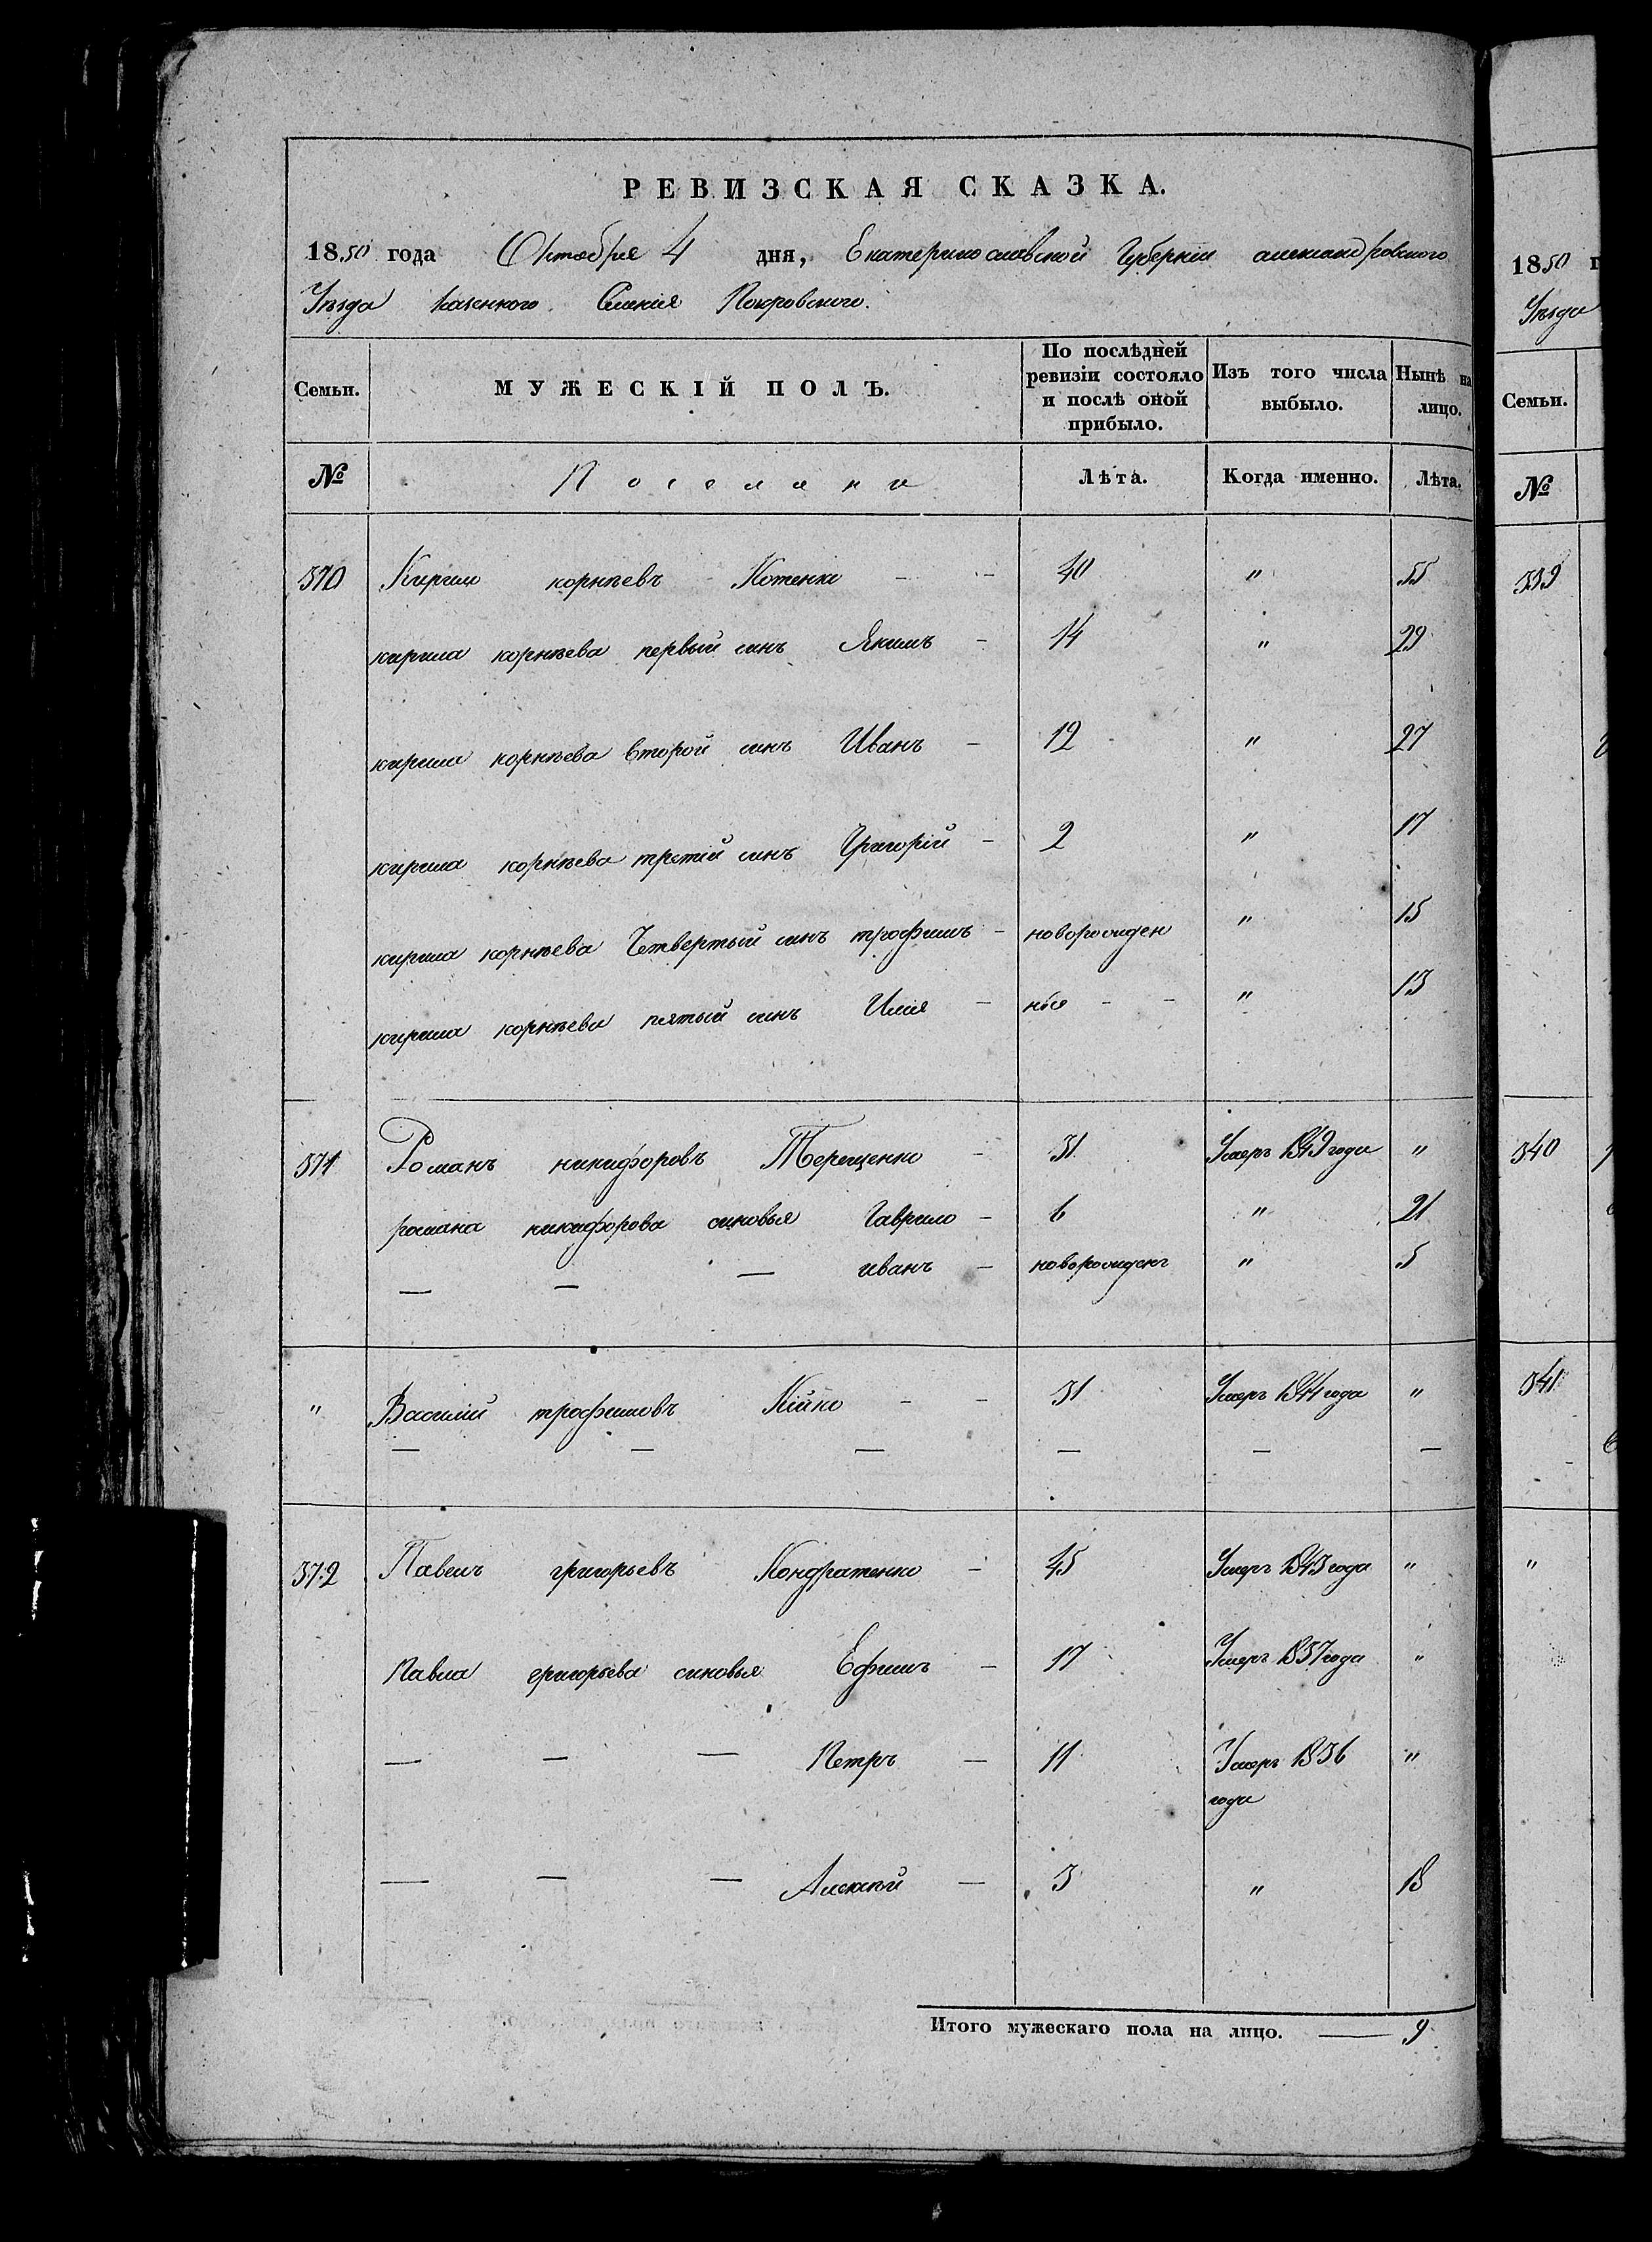 РЕВИЗСКАЯ СКАЗКА.
1850 года Октября 4 дня, Екатеринославской Губерніи александровского
Уѣзда казенного Селенія Покровского.
Семьи.
МУЖЕСКІЙ ПОЛЪ.
По послѣдней
ревизіи состояло
и послѣ оной
прибыло.
Изъ того числа
выбыло.
Нынѣ на
лицо.
№ Поселяни Лѣта. Когда именно. Лѣта.
370 Кирило корнѣевъ Котенко - - 40 " 55
кирила корнѣева первый синъ Якимъ - 14 " 29
кирила корнѣева второй синъ Иванъ - 12 " 27
кирила корнѣева третій синъ Григорій - 2 " 17
кирила корнѣева Четвертый синъ трофимъ - новорожден " 15
кирила корнѣева пятый синъ Илия - ніе - - " 13
371 Романъ никифоровъ Терещенко - 31 Умеръ 1849 года "
романа никифорова синовья Гаврило - 6 " 21
— — — иванъ - новорожденъ " 5
" Василий трофимовъ Кійко - - 31 Умеръ 1844 года "
— — — — — —
372 Павелъ григорьевъ Кондратенко - 45 Умеръ 1843 года "
Павла григорьева синовья Ефимъ - 17 Умеръ 1837 года "
— — — Петръ - 11 Умеръ 1836 "
года
— — — Алексѣй - 3 " 18
Итого мужескаго пола на лицо. — 9
1850 г
Уѣзда
Семьи.
№
339
340
341
"